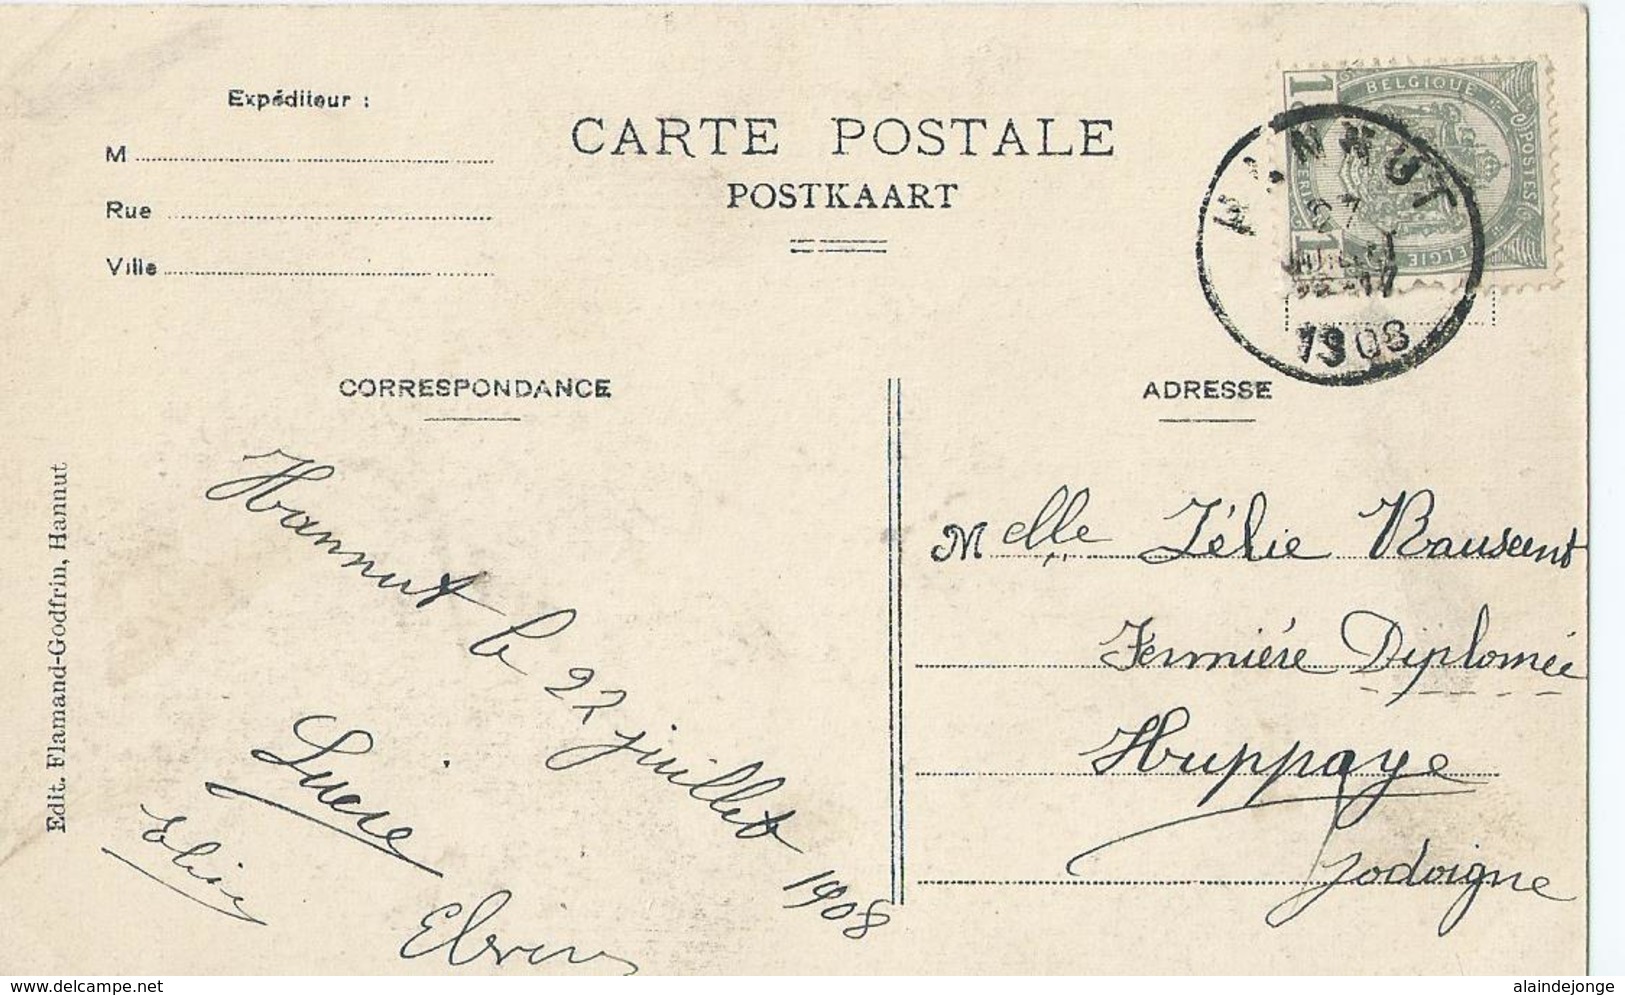 Expéditeur :
M
Rue
Ville
CARTE POSTALE
POSTKAART
1 BELGIQUE POSTES
1 BELGIE
HANNUT
27
JUILLET
1908
CORRESPONDANCE
ADRESSE
Edit. Flamand-Godfrin, Hannut
Hannut le 27 juillet 1908
Lucie
Elvire
Melle Zélie Rausent
Fermière Diplomée
Huppaye
Jodoigne
www.delcampe.net
alaindejonge